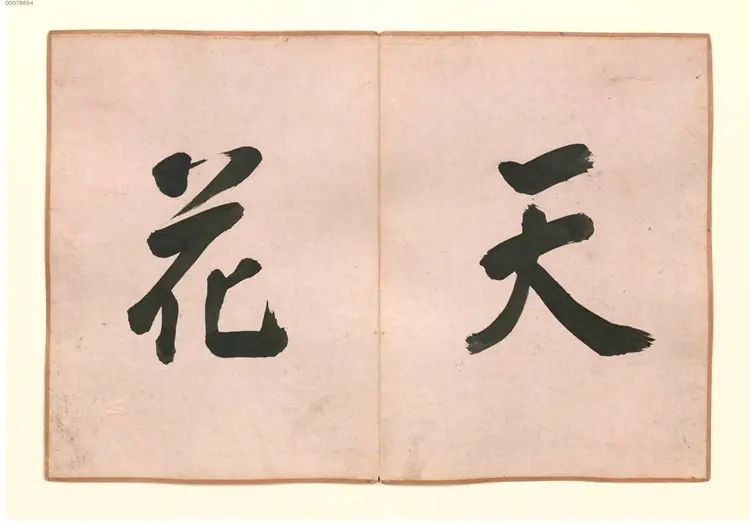 00078684
天
花